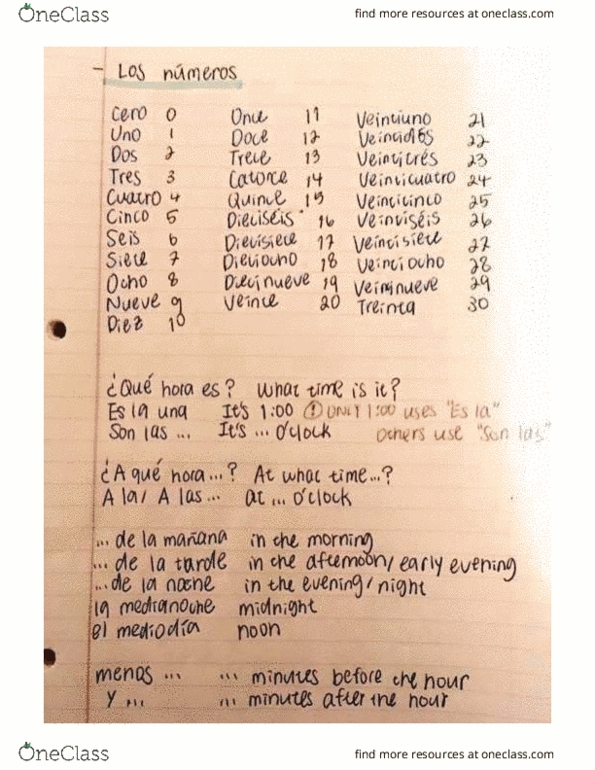 OneClass find more resources at oneclass.com
- Los números
Cero 0 Once 11 Veintiuno 21
Uno 1 Doce 12 Veintidós 22
Dos 2 Trece 13 Veintitrés 23
Tres 3 Catorce 14 Veinticuatro 24
Cuatro 4 Quince 15 Veinticinco 25
Cinco 5 Dieciséis 16 Veintiséis 26
Seis 6 Diecisiete 17 Veintisiete 27
Siete 7 Dieciocho 18 Veintiocho 28
Ocho 8 Diecinueve 19 Veininueve 29
Nueve 9 Veince 20 Treinta 30
Diez 10
¿Qué hora es? What time is it?
Es la una It's 1:00 ! ONLY 1:00 uses "Es la"
Son las ... It's ... o'clock others use "Son las"
¿A qué hora...? At what time...?
A la/ A las... at ... o'clock
... de la mañana in the morning
... de la tarde in the afternoon/early evening
...de la noche in the evening/night
la medianoche midnight
el mediodía noon
menos ... ... minutes before the hour
y ... ... minutes after the hour
OneClass find more resources at oneclass.com